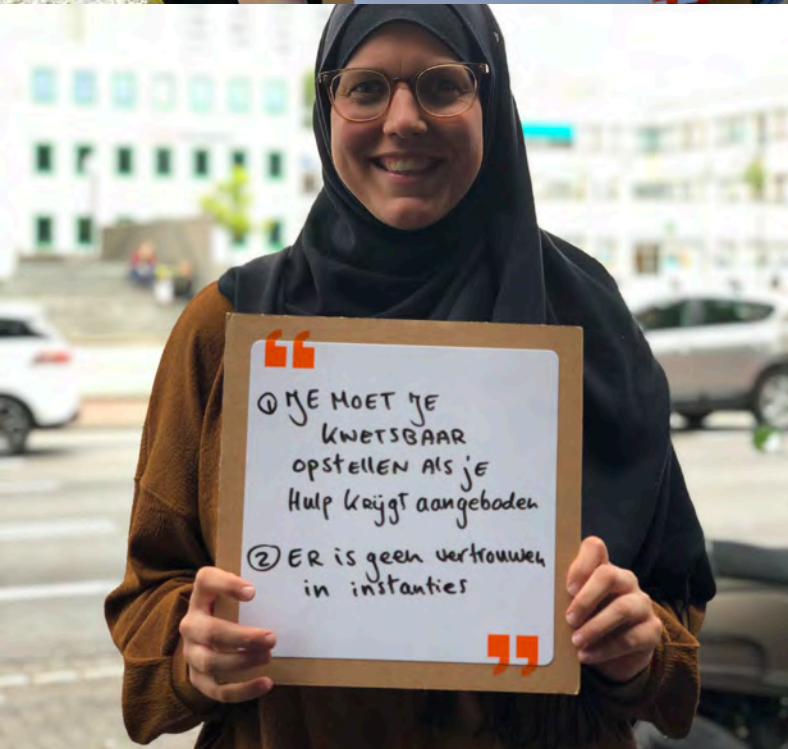 “
① JE MOET JE
KWETSBAAR
OPSTELLEN ALS JE
Hulp Krijgt aangeboden
② ER is geen vertrouwen
in instanties
”